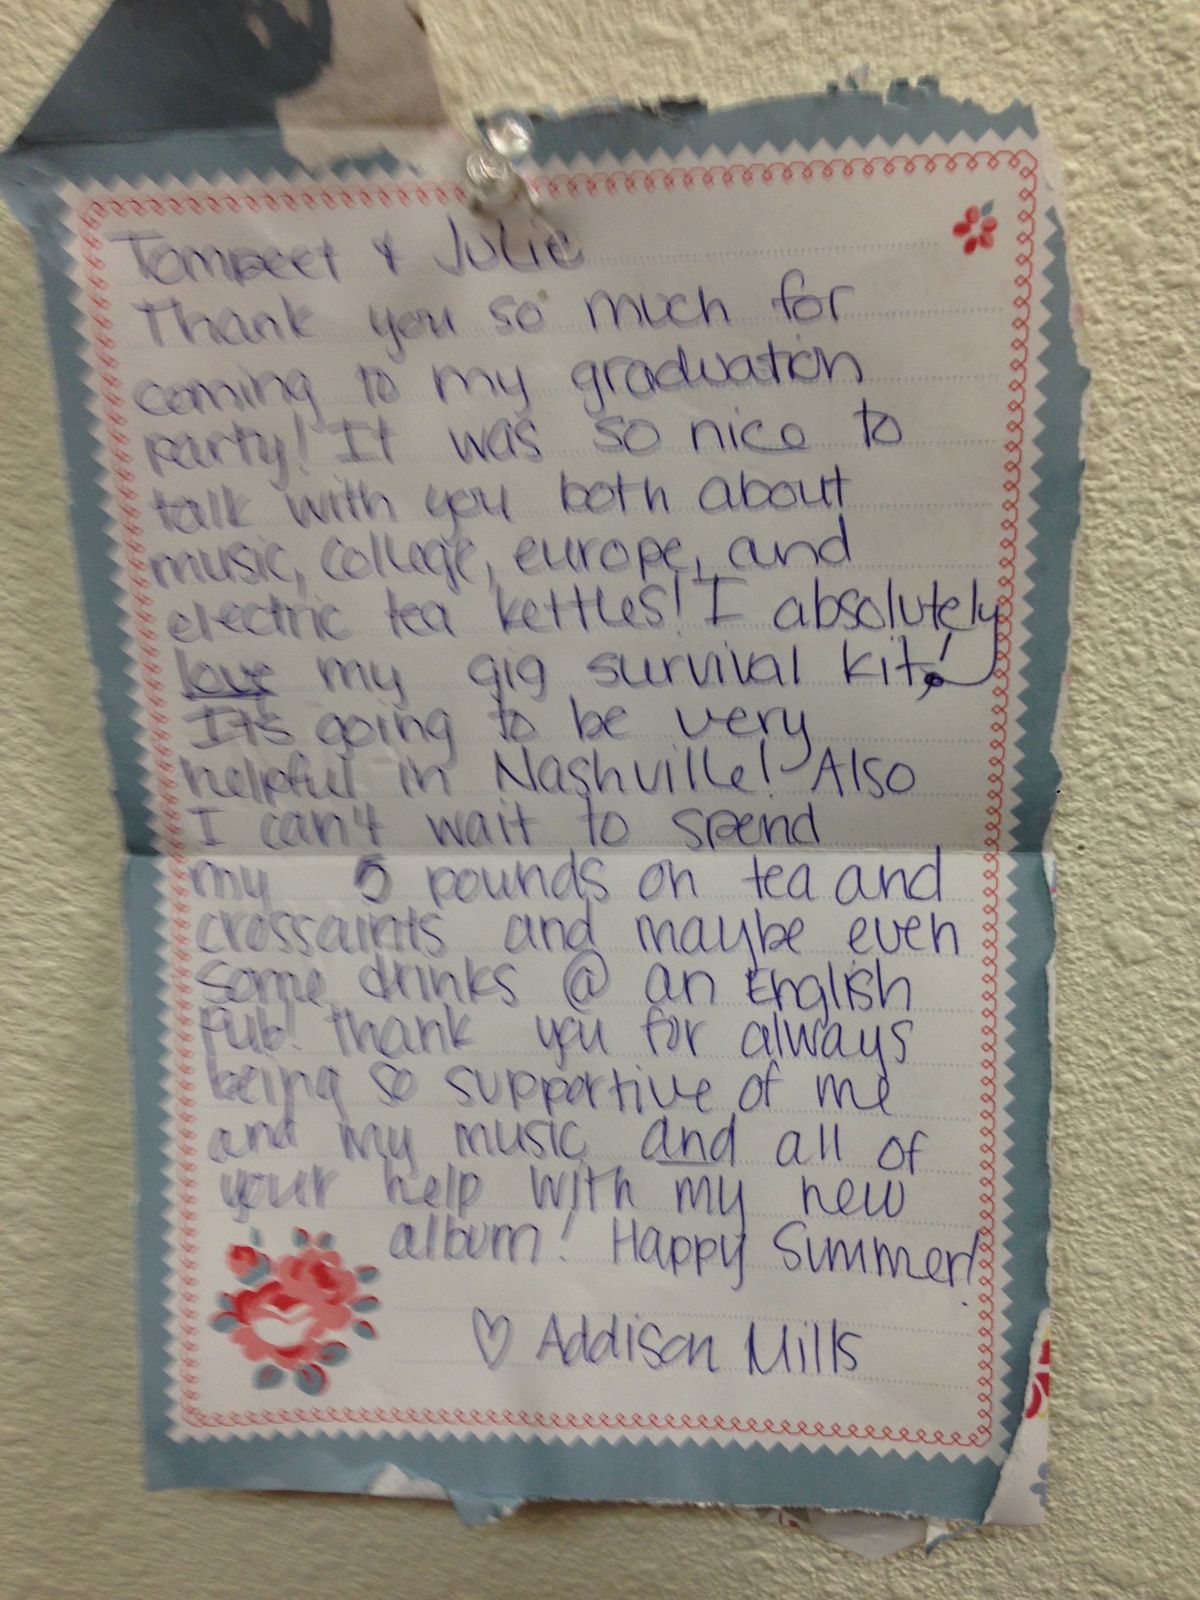 Tompeet & Julie
Thank you so much for
coming to my graduation
party! It was so nice to
talk with you both about
music, college, europe, and
electric tea kettles! I absolutely
love my gig survival kit!
It's going to be very
helpful in Nashville! Also
I can't wait to spend
my 5 pounds on tea and
crossaints and maybe even
some drinks @ an English
Pub! Thank you for always
being so supportive of me
and my music and all of
your help with my new
album! Happy Summer!
♡ Addison Mills